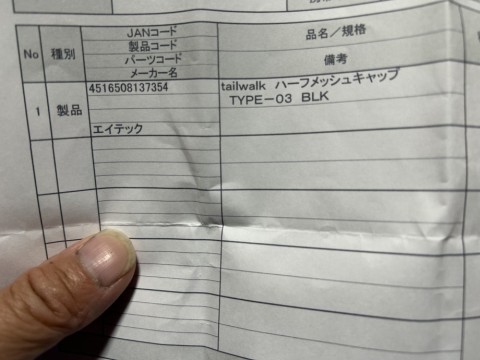 No 種別 JANコード 品名／規格
製品コード
パーツコード 備考
メーカー名
1 製品 4516508137354 tailwalk ハーフメッシュキャップ
TYPE－03 BLK
エイテック